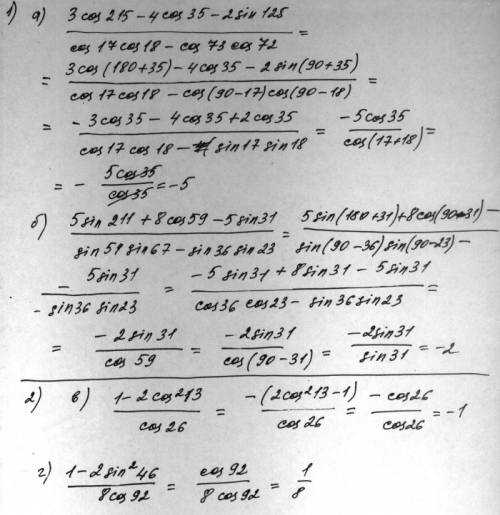 1) а) (3cos215 - 4cos35 - 2sin125)/(cos17cos18 - cos73cos72) =
= (3cos(180+35) - 4cos35 - 2sin(90+35))/(cos17cos18 - cos(90-17)cos(90-18)) =
= (-3cos35 - 4cos35 + 2cos35)/(cos17cos18 - sin17sin18) = (-5cos35)/(cos(17+18)) =
= - (5cos35)/(cos35) = -5
б) (5sin211 + 8cos59 - 5sin31)/(sin54sin67 - sin36sin23) = (5sin(180+31) + 8cos(90-31) -)/(sin(90-36)sin(90-23) -)
(- 5sin31)/(- sin36sin23) = (-5sin31 + 8sin31 - 5sin31)/(cos36cos23 - sin36sin23) =
= (-2sin31)/(cos59) = (-2sin31)/(cos(90-31)) = (-2sin31)/(sin31) = -2
2) в) (1-2cos²13)/(cos26) = (-(2cos²13-1))/(cos26) = (-cos26)/(cos26) = -1
г) (1-2sin²46)/(8cos92) = (cos92)/(8cos92) = 1/8